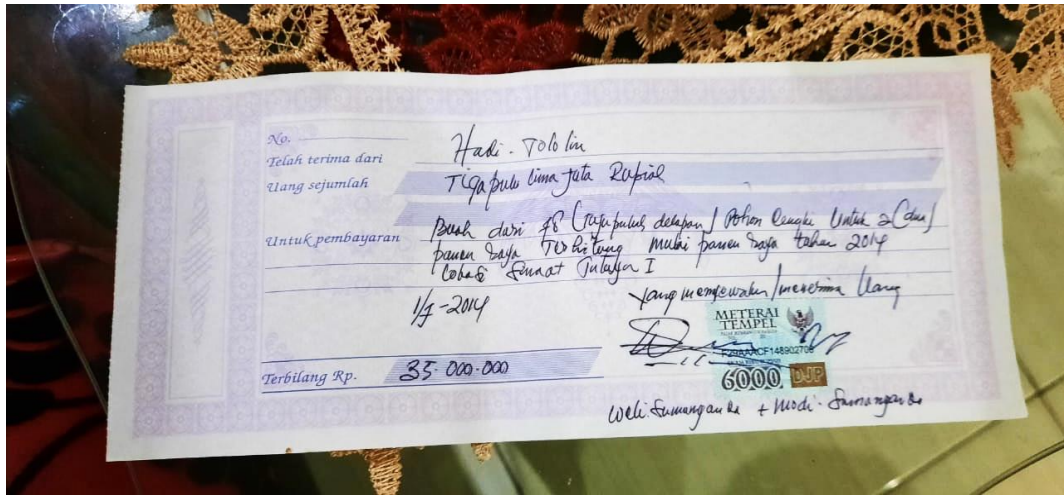 No.
Telah terima dari Hadi - Tololiu
Uang sejumlah Tiga pulu lima juta Rupiah
Untuk pembayaran Buah dari 78 (tujupuluh delapan) Pohon Cengke Untuk 2 (dua)
panen Raya Terhitung mulai panen Raya tahun 2014
1/ -2014 yang menyewakan/menerima Uang
METERAI
TEMPEL
CF148902708
6000 DJP
Terbilang Rp. 35.000.000
Weli. Sumanganda + Modi - Sumanganda